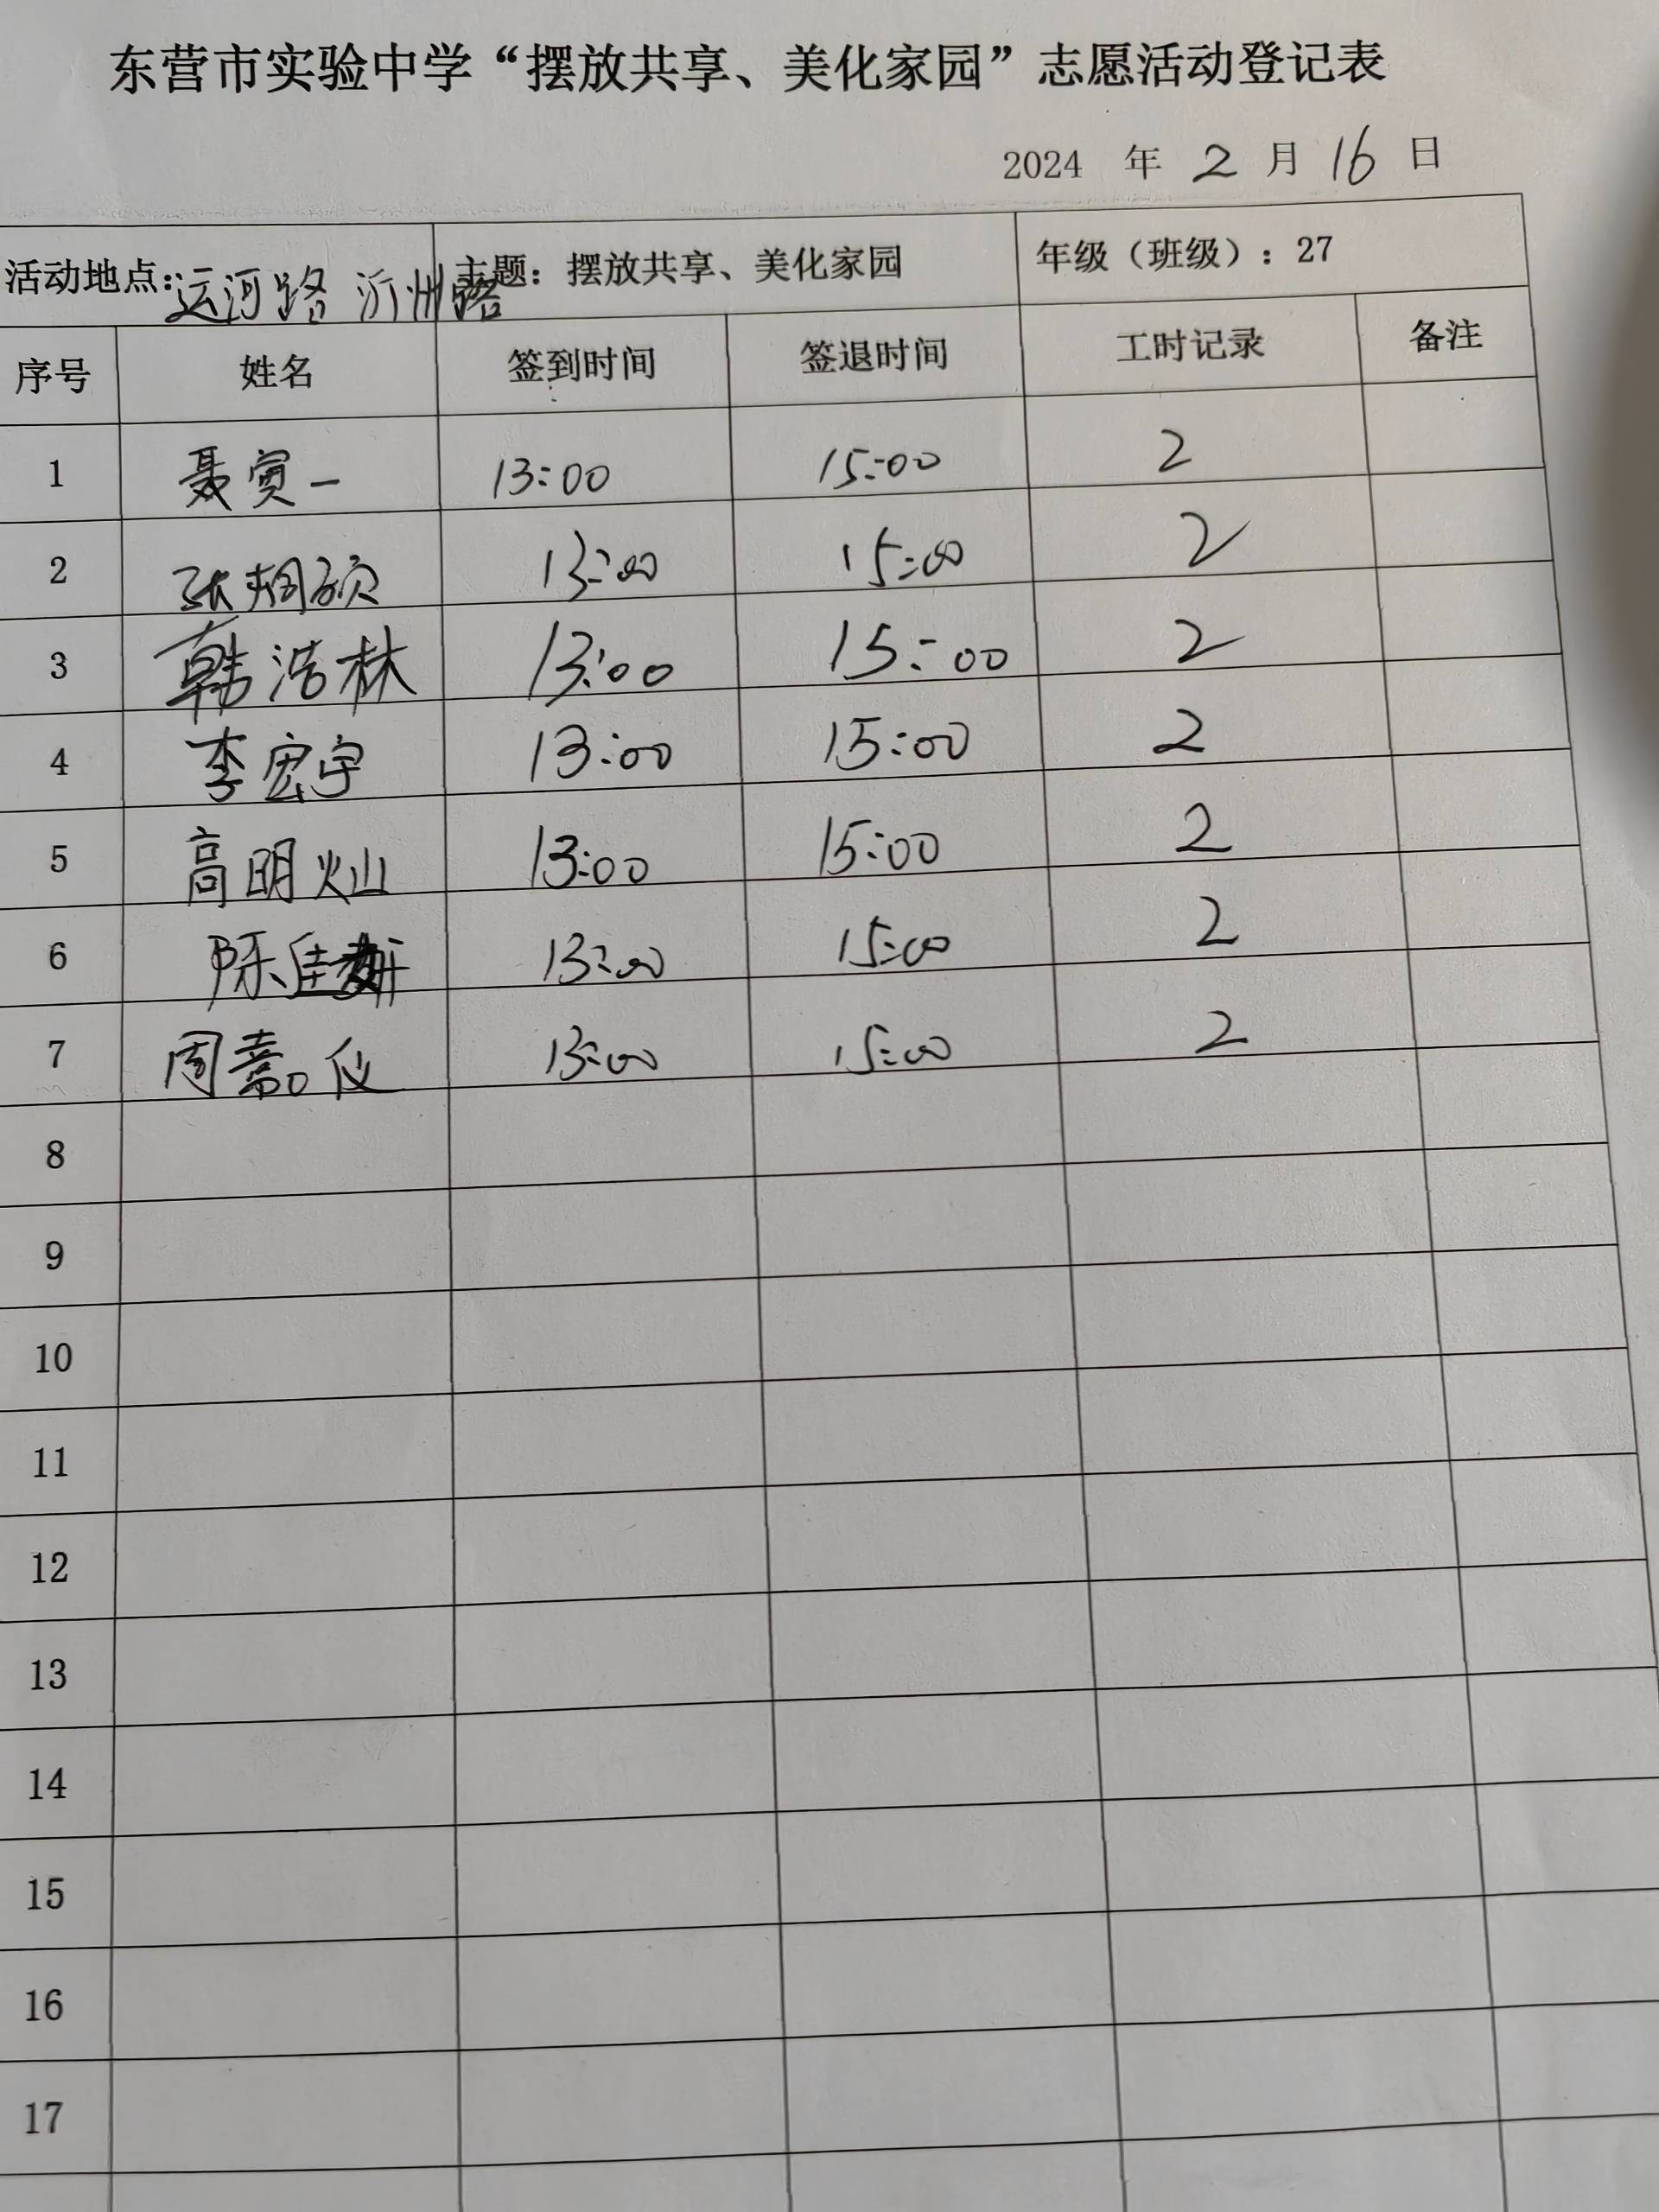 东营市实验中学“摆放共享、美化家园”志愿活动登记表
2024 年 2 月 16 日
活动地点:运河路 沂州路 主题：摆放共享、美化家园 年级（班级）：27
序号 姓名 签到时间 签退时间 工时记录 备注
1 聂寅一 13:00 15:00 2
2 张栩硕 13:00 15:00 2
3 韩浩林 13:00 15:00 2
4 李宏宇 13:00 15:00 2
5 高明灿 13:00 15:00 2
6 陈佳妍 13:00 15:00 2
7 周熹仪 13:00 15:00 2
8
9
10
11
12
13
14
15
16
17